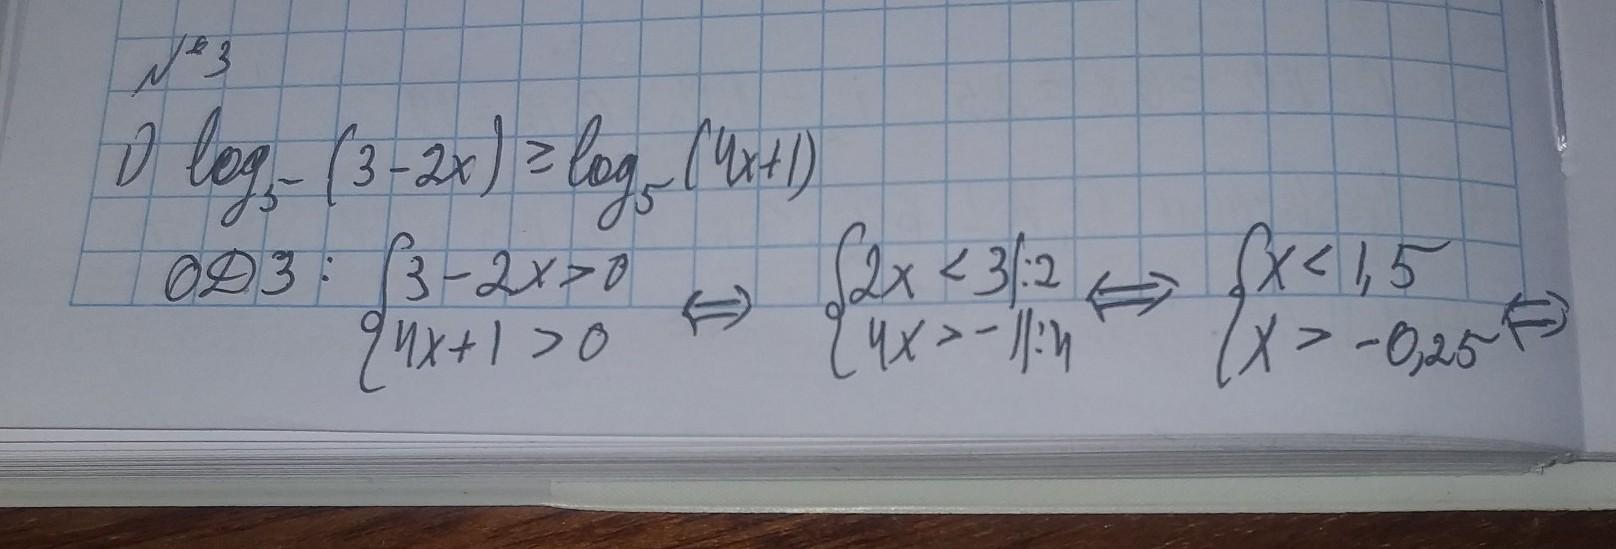 №3
1) log₅(3-2x) ≥ log₅(4x+1)
ОДЗ: { 3-2x>0 ⇔ { 2x<3|:2 ⇔ { x<1,5 ⇔
{ 4x+1>0 { 4x>-1|:4 { x>-0,25